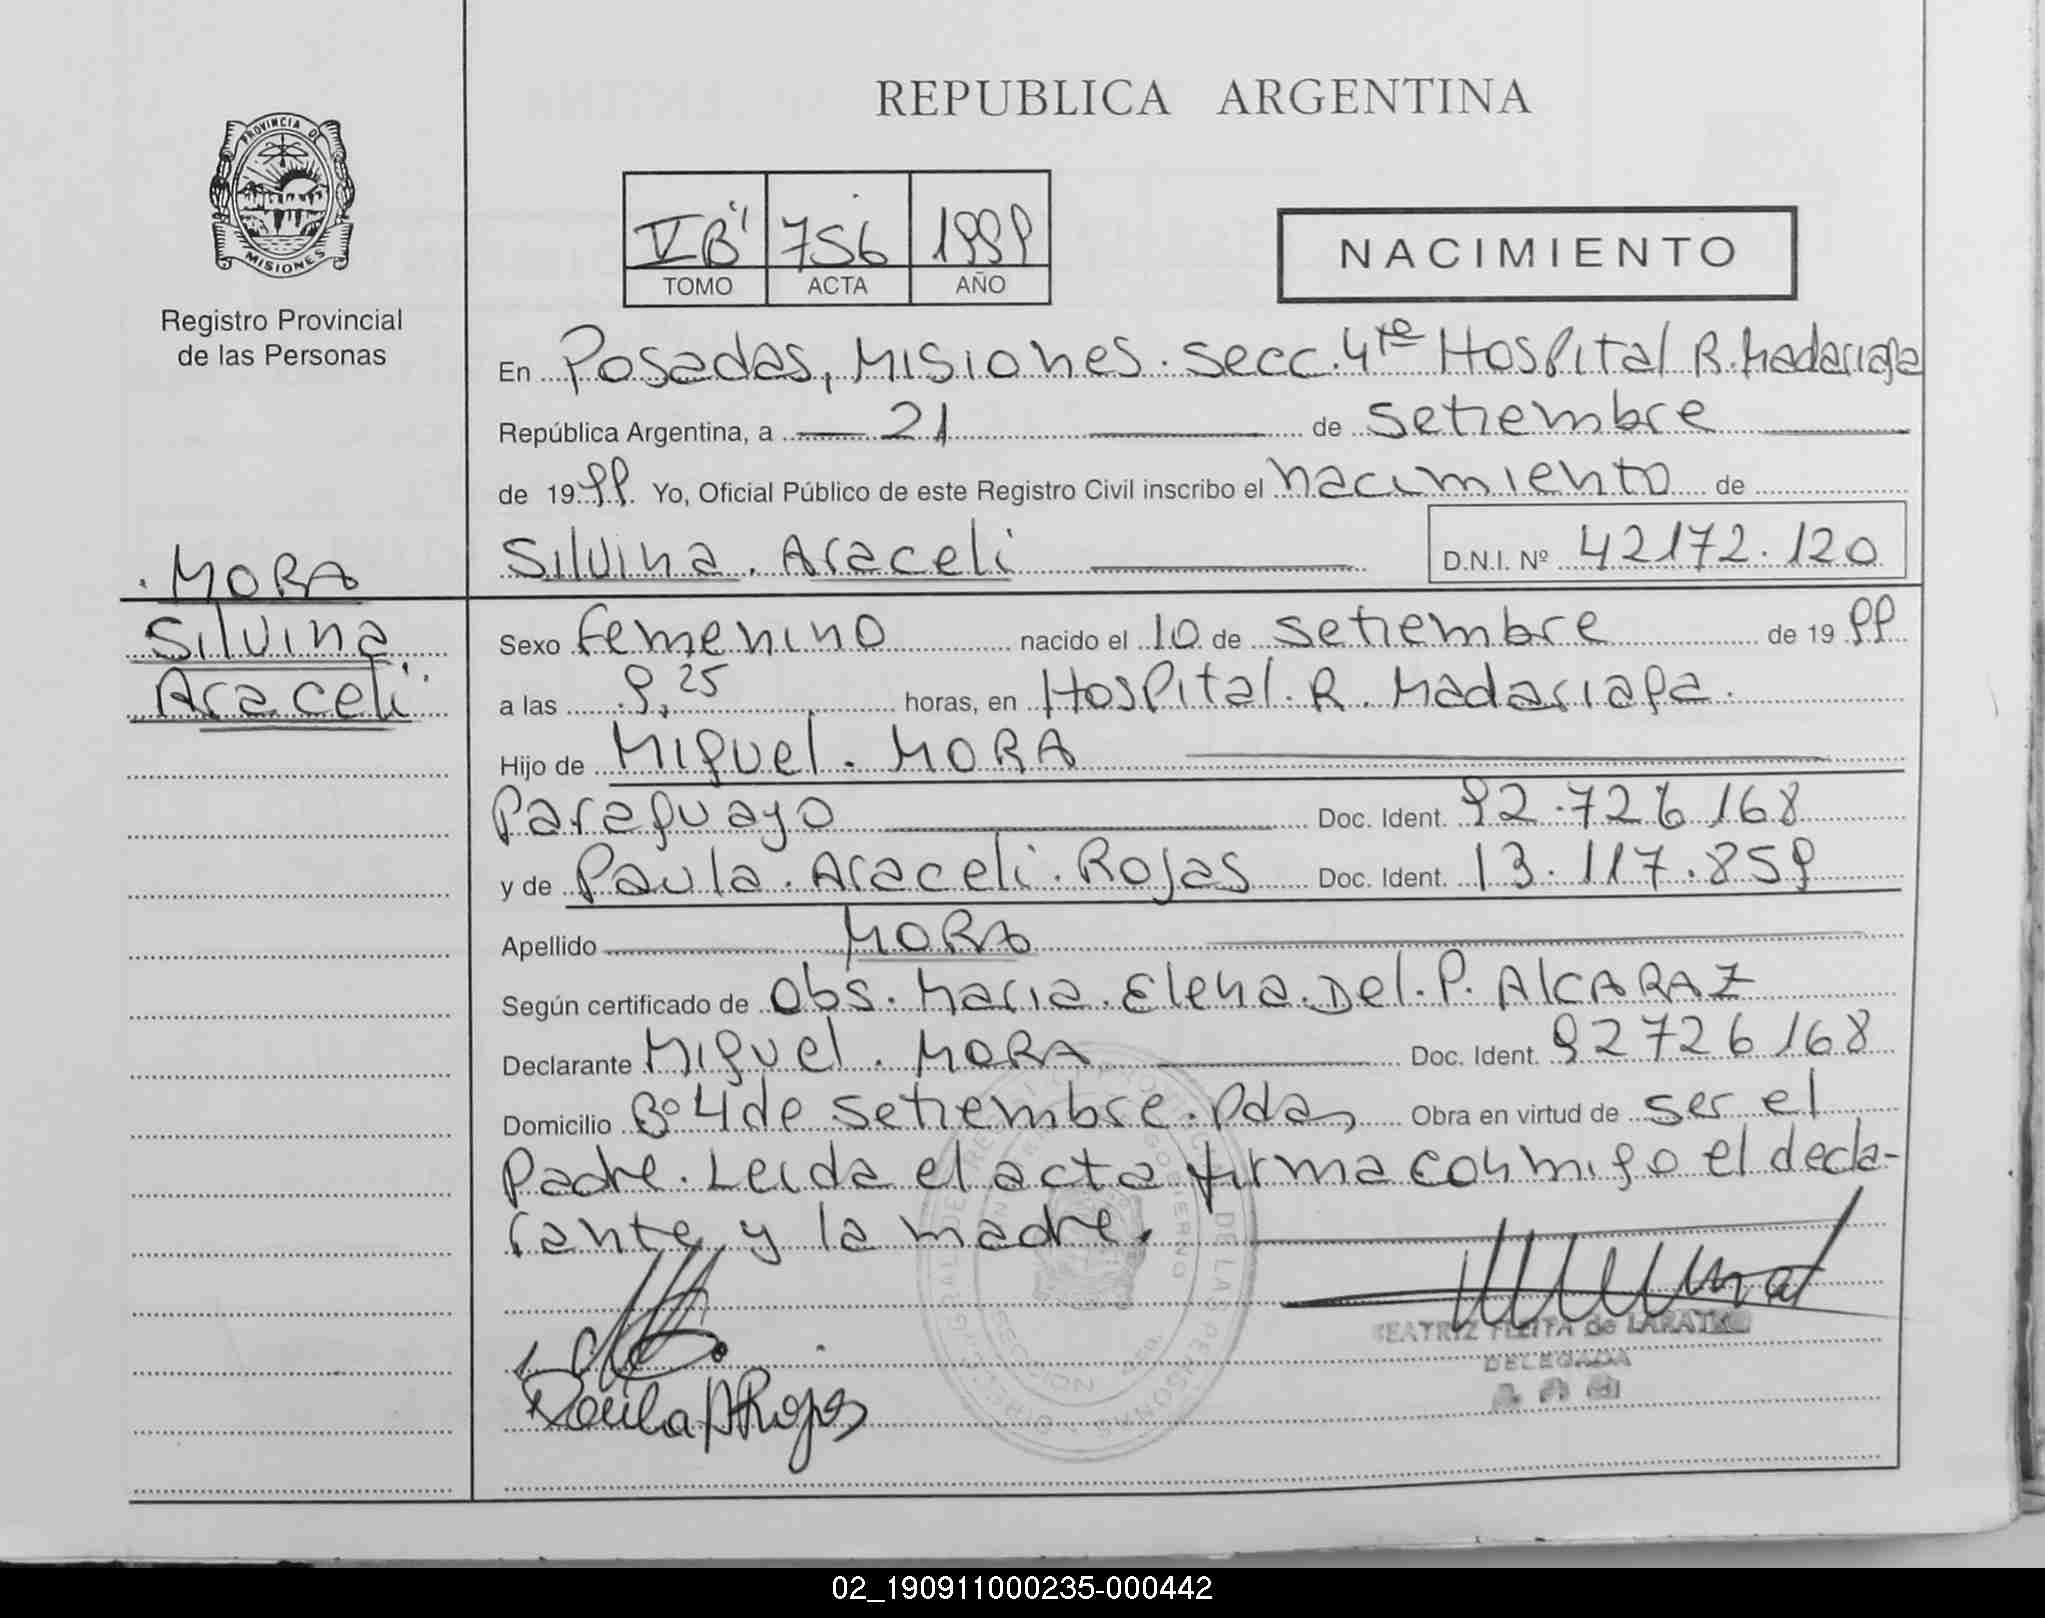 REPUBLICA ARGENTINA
PROVINCIA D MISIONES
Registro Provincial
de las Personas
V "B" 756 1999
TOMO ACTA AÑO
NACIMIENTO
En Posadas, Misiones. Secc. 4ta Hospital R. Madariaga
República Argentina, a 21 de Setiembre
de 1999. Yo, Oficial Público de este Registro Civil inscribo el nacimiento de
Silvina. Araceli D.N.I. Nº 42172.120
MORA
Silvina
Araceli
Sexo femenino nacido el 10 de Setiembre de 1999
a las 9,25 horas, en Hospital. R. Madariaga.
Hijo de Miguel. MORA
Paraguayo Doc. Ident. 92.726168
y de Paula. Araceli. Rojas Doc. Ident. 13.117.859
Apellido MORA
Según certificado de Obs. Maria. Elena. Del. P. AlCARAZ
Declarante Miguel. MORA Doc. Ident. 92726168
Domicilio Bº 4 de Setiembre. Pdas, Obra en virtud de ser el
Padre. Leida el acta firma conmigo el decla-
rante y la madre.
Paula A Rojas
BEATRIZ FLEITA de
DELEGADA
02_190911000235-000442